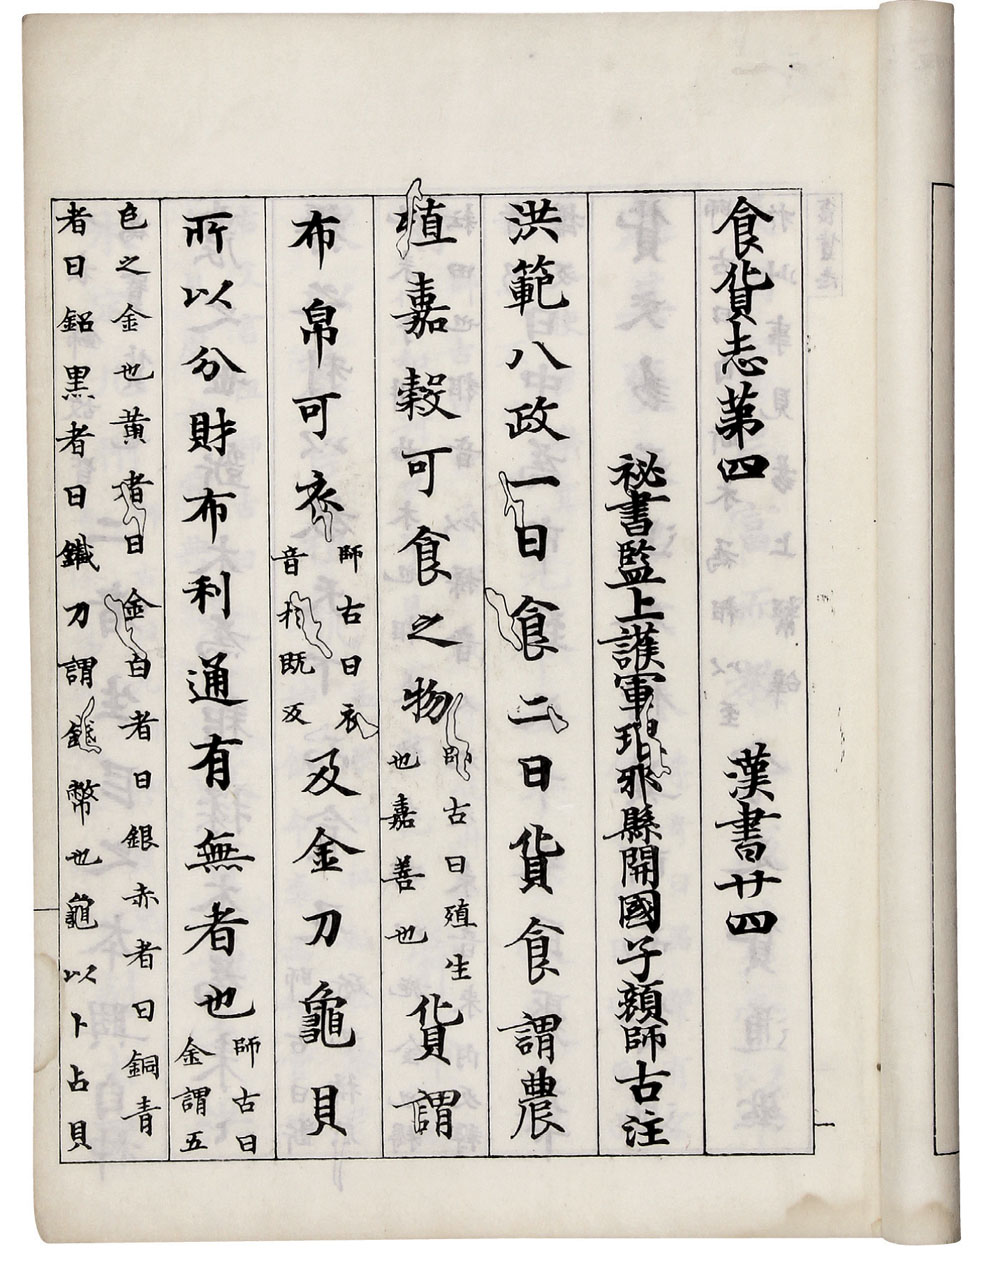 食貨志第四 漢書廿四
祕書監上護軍琅邪縣開國子顔師古注
洪範八政一曰食二曰貨食謂農
植嘉穀可食之物
師古曰殖生
也嘉善也
貨謂
布帛可衣
師古曰衣
音於既反
及金刀龜貝
所以分財布利通有無者也
師古曰
金謂五
色之金也黃者曰金白者曰銀赤者曰銅青
者曰鉛黑者曰鐵刀謂錢幣也龜以卜占貝